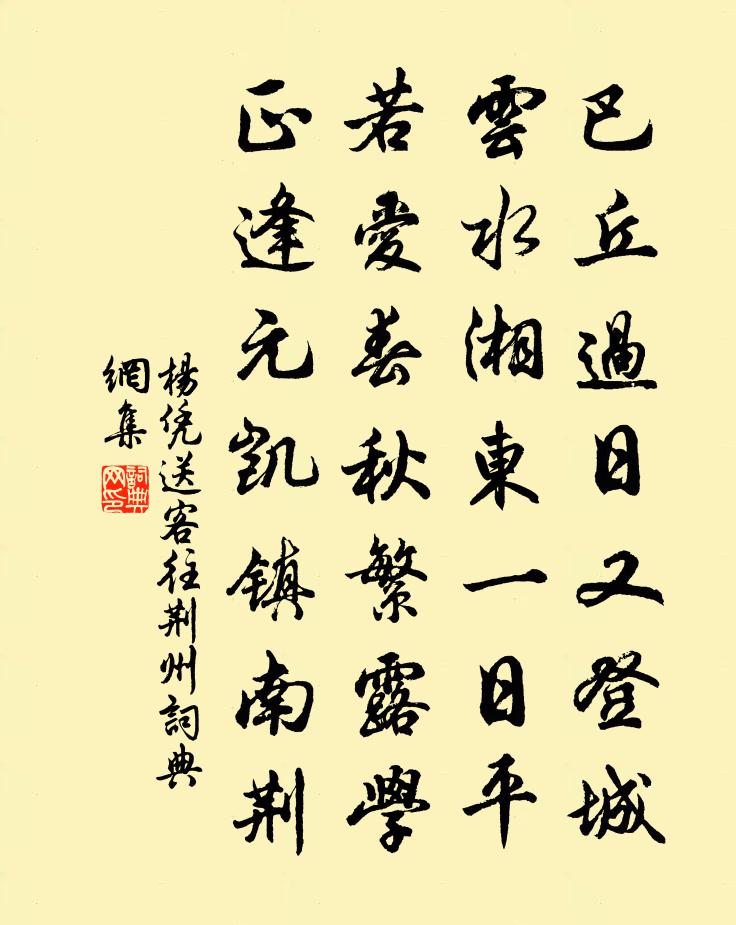 巴丘過日又登城
雲水湘東一日平
若愛春秋繁露學
正逢元凱镇南荆
楊凭送客往荆州詞典
網集
詞典
网印